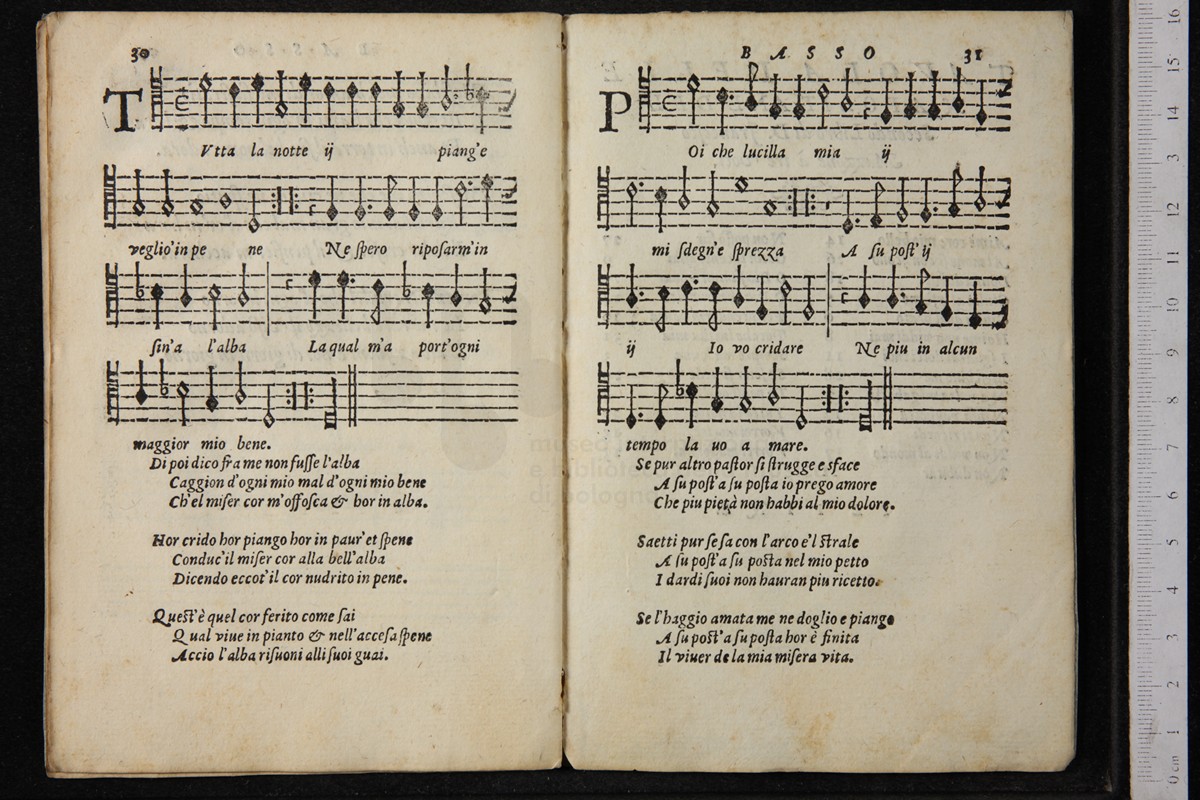 30
TVtta la notte ij piang'e
veglio'in pe ne Ne spero riposarm'in
sin'a l'alba La qual m'a port'ogni
maggior mio bene.
Di poi dico fra me non fusse l'alba
Caggion d'ogni mio mal d'ogni mio bene
Ch'el miser cor m'offosca & hor in alba.
Hor crido hor piango hor in paur'et spene
Conduc'il miser cor alla bell'alba
Dicendo eccot'il cor nudrito in pene.
Quest'è quel cor ferito come sai
Qual viue in pianto & nell'accesa spene
Accio l'alba risuoni alli suoi guai.
BASSO 31
POi che lucilla mia ij
mi sdegn'e sprezza A su post' ij
ij Io vo cridare Ne piu in alcun
tempo la uo a mare.
Se pur altro pastor si strugge e sface
A su post'a su posta io prego amore
Che piu pietà non habbi al mio dolore.
Saetti pur se sa con l'arco e'l strale
A su post'a su posta nel mio petto
I dardi suoi non hauran piu ricetto.
Se l'haggio amata me ne doglio e piango
A su post'a su posta hor è finita
Il viuer de la mia misera vita.
museo
e biblio
di bologna
0 cm 1 2 3 4 5 6 7 8 9 10 11 12 13 14 15 16